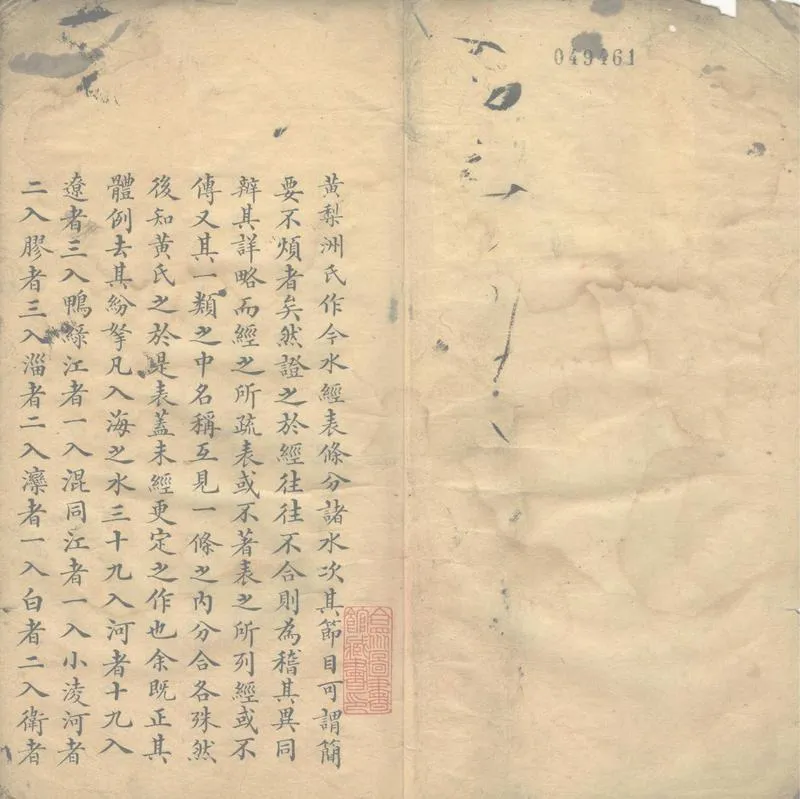 049461
黄梨洲氏作今水經表條分諸水次其節目可謂簡
要不煩者矣然證之於經往往不合則為稽其異同
辨其詳略而經之所疏表或不著表之所列經或不
傳又其一類之中名稱互見一條之内分合各殊然
後知黄氏之於是表蓋未經更定之作也余既正其
體例去其紛拏凡入海之水三十九入河者十九入
遼者三入鴨綠江者一入混同江者一入小淩河者
二入膠者三入淄者二入濼者一入白者二入衛者